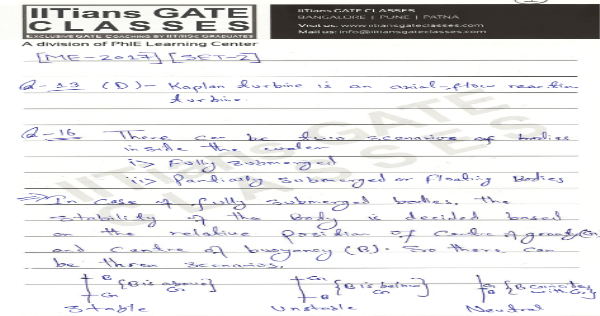 IITians GATE
CLASSES
EXCLUSIVE GATE COACHING BY IIT/IISC GRADUATES
A division of PhIE Learning Center
IITians GATE CLASSES
BANGALORE | PUNE | PATNA
Visit us: www.iitiansgateclasses.com
Mail us: info@iitiansgateclasses.com
[ME-2017] [SET-2]
Q-13 (D)- Kaplan turbine is an axial-flow reaction
turbine.
Q-16 There can be two scenarios of bodies
inside the water
i> Fully submerged
ii> Partially submerged or Floating Bodies
⇒ In case of fully submerged bodies, the
stability of the Body is decided based
on the relative position of Centre of gravity (G)
and Centre of buoyancy (B). So there can
be three scenarios.
B G {B is above G}
G B {B is below G}
G B {B coincides with G}
Stable Unstable Neutral
IITIANS GATE
CLASSES